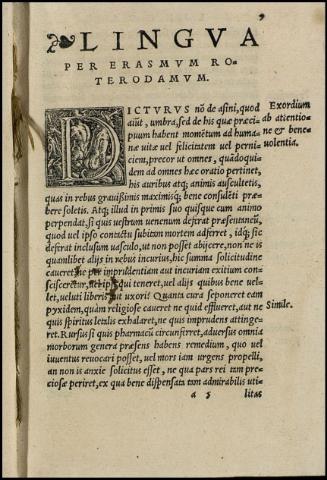 LINGVA
PER ERASMVM RO-
TERODAMVM.
DICTVRVS nõ de asini, quod
aiũt, umbra, sed de his quæ præci
puum habent momẽtum ad huma-
næ vitæ vel felicitatem vel perni-
ciem, precor ut omnes, quãdoqui-
dem ad omnes hæc oratio pertinet,
his auribus atq; animis auscultetis,
quas in rebus grauissimis maximisq; bene consulẽti præ
bere soletis. Atq; illud in primis suo quisque cum animo
perpendat, si quis uestrum uenenum deferat præsentaneũ,
quod uel ipso contactu subitam mortem adferret, idq; sic
deferat inclusum uasculo, ut non posset abijcere, non ne is
quamlibet alijs in rebus incurius, hic summa solicitudine
caueret, ne per imprudentiam aut incuriam exitium con-
scisceretur, uel ipsi qui teneret, uel alijs quibus bene uel-
let, veluti liberis aut uxori? Quanta cura seponeret eam
pyxidem, quàm religiose caueret ne quid efflueret, aut ne
quis spiritus letalis exhalaret, ne quis imprudens attinge-
ret. Rursus si quis pharmacũ circunferret, aduersus omnia
morborum genera præsens habens remedium, quo uel
iuuentus reuocari posset, uel mors iam urgens propelli,
an non is anxie solicitus esset, ne qua pars rei tam pre-
ciosæ periret, ex qua bene dispensata tam admirabilis uti-
a 5 litas
Exordium
ab attentio-
ne & bene-
volentia.
Simile.